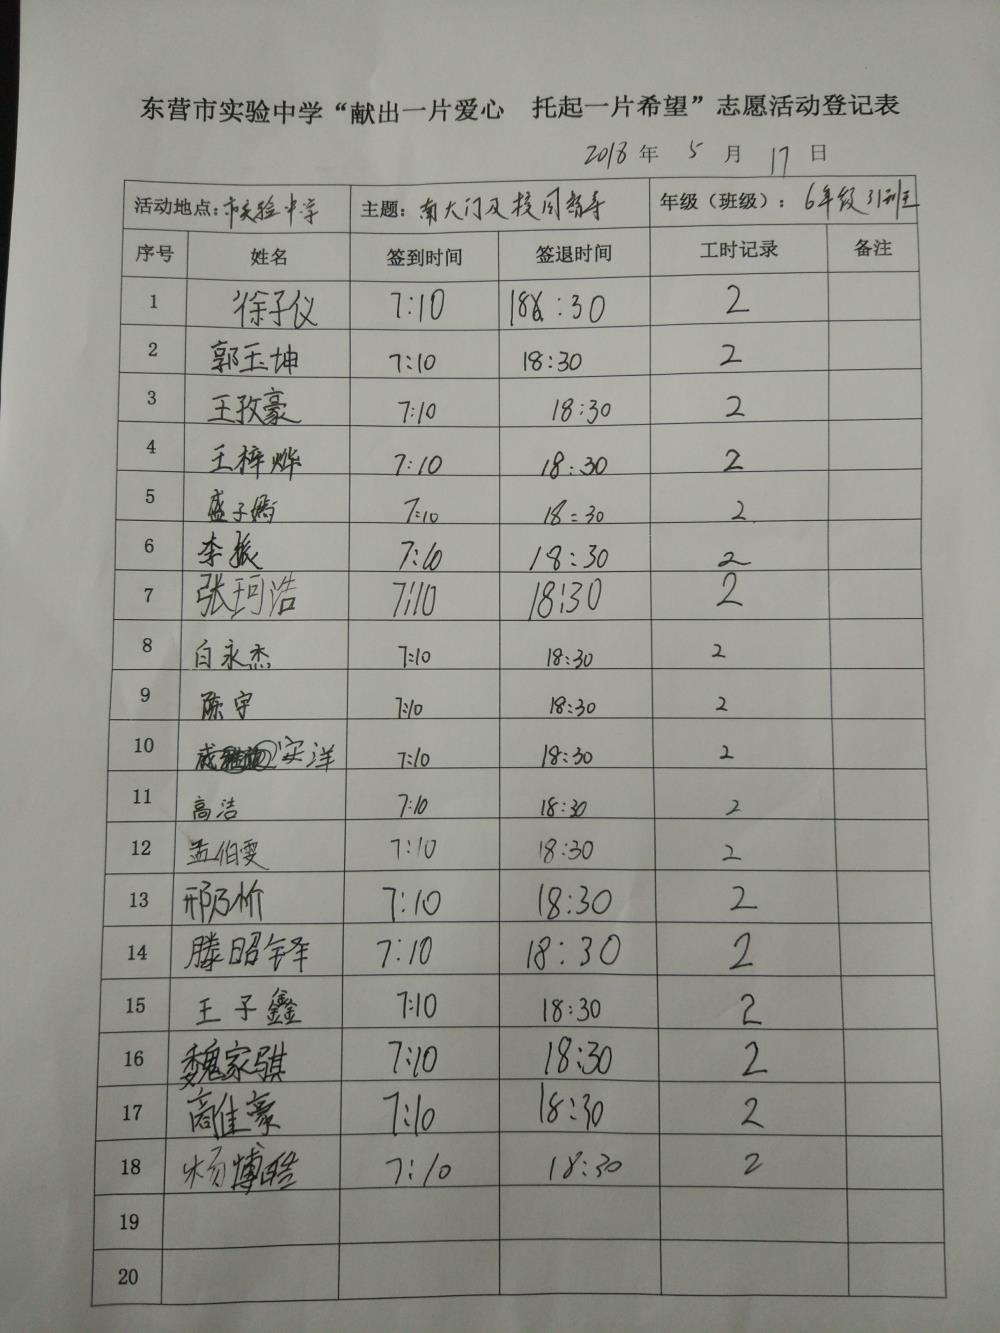 东营市实验中学“献出一片爱心 托起一片希望”志愿活动登记表
2018 年 5 月 17 日
活动地点：市实验中学 主题：南大门及校园督导 年级（班级）：6年级31班
序号 姓名 签到时间 签退时间 工时记录 备注
1 徐子仪 7:10 18:30 2
2 郭玉坤 7:10 18:30 2
3 王孜豪 7:10 18:30 2
4 王梓烨 7:10 18:30 2
5 盛子嫣 7:10 18:30 2
6 李振 7:10 18:30 2
7 张珂浩 7:10 18:30 2
8 白永杰 7:10 18:30 2
9 陈宇 7:10 18:30 2
10 洋 7:10 18:30 2
11 高洁 7:10 18:30 2
12 孟伯雯 7:10 18:30 2
13 邢乃价 7:10 18:30 2
14 滕昭铎 7:10 18:30 2
15 王子鑫 7:10 18:30 2
16 魏家骐 7:10 18:30 2
17 商佳豪 7:10 18:30 2
18 杨博皓 7:10 18:30 2
19
20